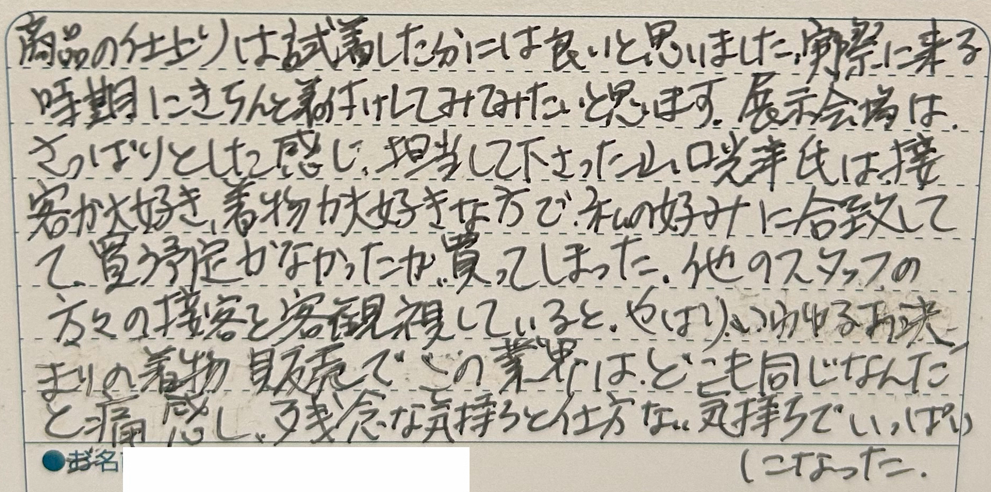 商品の仕上りは試着した分には良いと思いました、実際に来る
時期にきちんと着付けしてみてみたいと思います。展示会場は、
さっぱりとした感じ、担当して下さった山口光洋氏は、接
客が大好き、着物が大好きな方で、私の好みに合致して
て、買う予定がなかったが、買ってしまった。他のスタッフの
方々の接客を客観視していると、やはりいわゆるお決
まりの着物販売でこの業界は、どこも同じなんだ
と痛感し、残念な気持ちと仕方ない気持ちでいっぱい
になった。
●お名